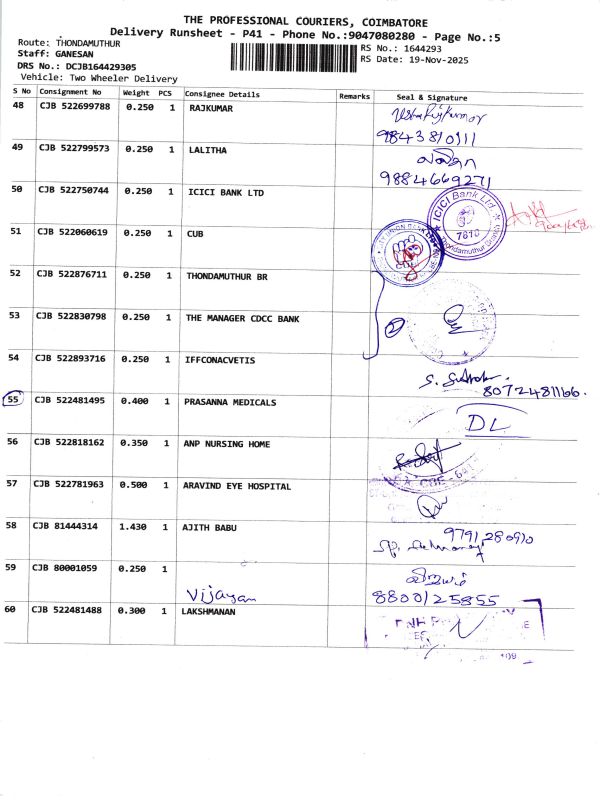 THE PROFESSIONAL COURIERS, COIMBATORE
Delivery Runsheet - P41 - Phone No.:9047080280 - Page No.:5
Route: THONDAMUTHUR
Staff: GANESAN
DRS No.: DCJB164429305
Vehicle: Two Wheeler Delivery
RS No.: 1644293
RS Date: 19-Nov-2025
S No Consignment No Weight PCS Consignee Details Remarks Seal & Signature
48 CJB 522699788 0.250 1 RAJKUMAR
9843810111
49 CJB 522799573 0.250 1 LALITHA
லலிதா
9884669271
50 CJB 522750744 0.250 1 ICICI BANK LTD
ICICI Bank Ltd.
7610
Thondamuthur Branch
51 CJB 522060619 0.250 1 CUB
52 CJB 522876711 0.250 1 THONDAMUTHUR BR
53 CJB 522830798 0.250 1 THE MANAGER CDCC BANK
2
54 CJB 522893716 0.250 1 IFFCONACVETIS
8072481166.
55 CJB 522481495 0.400 1 PRASANNA MEDICALS
DL
56 CJB 522818162 0.350 1 ANP NURSING HOME
57 CJB 522781963 0.500 1 ARAVIND EYE HOSPITAL
58 CJB 81444314 1.430 1 AJITH BABU
9791280910
59 CJB 80001059 0.250 1
Vijayan
8800125855
60 CJB 522481488 0.300 1 LAKSHMANAN